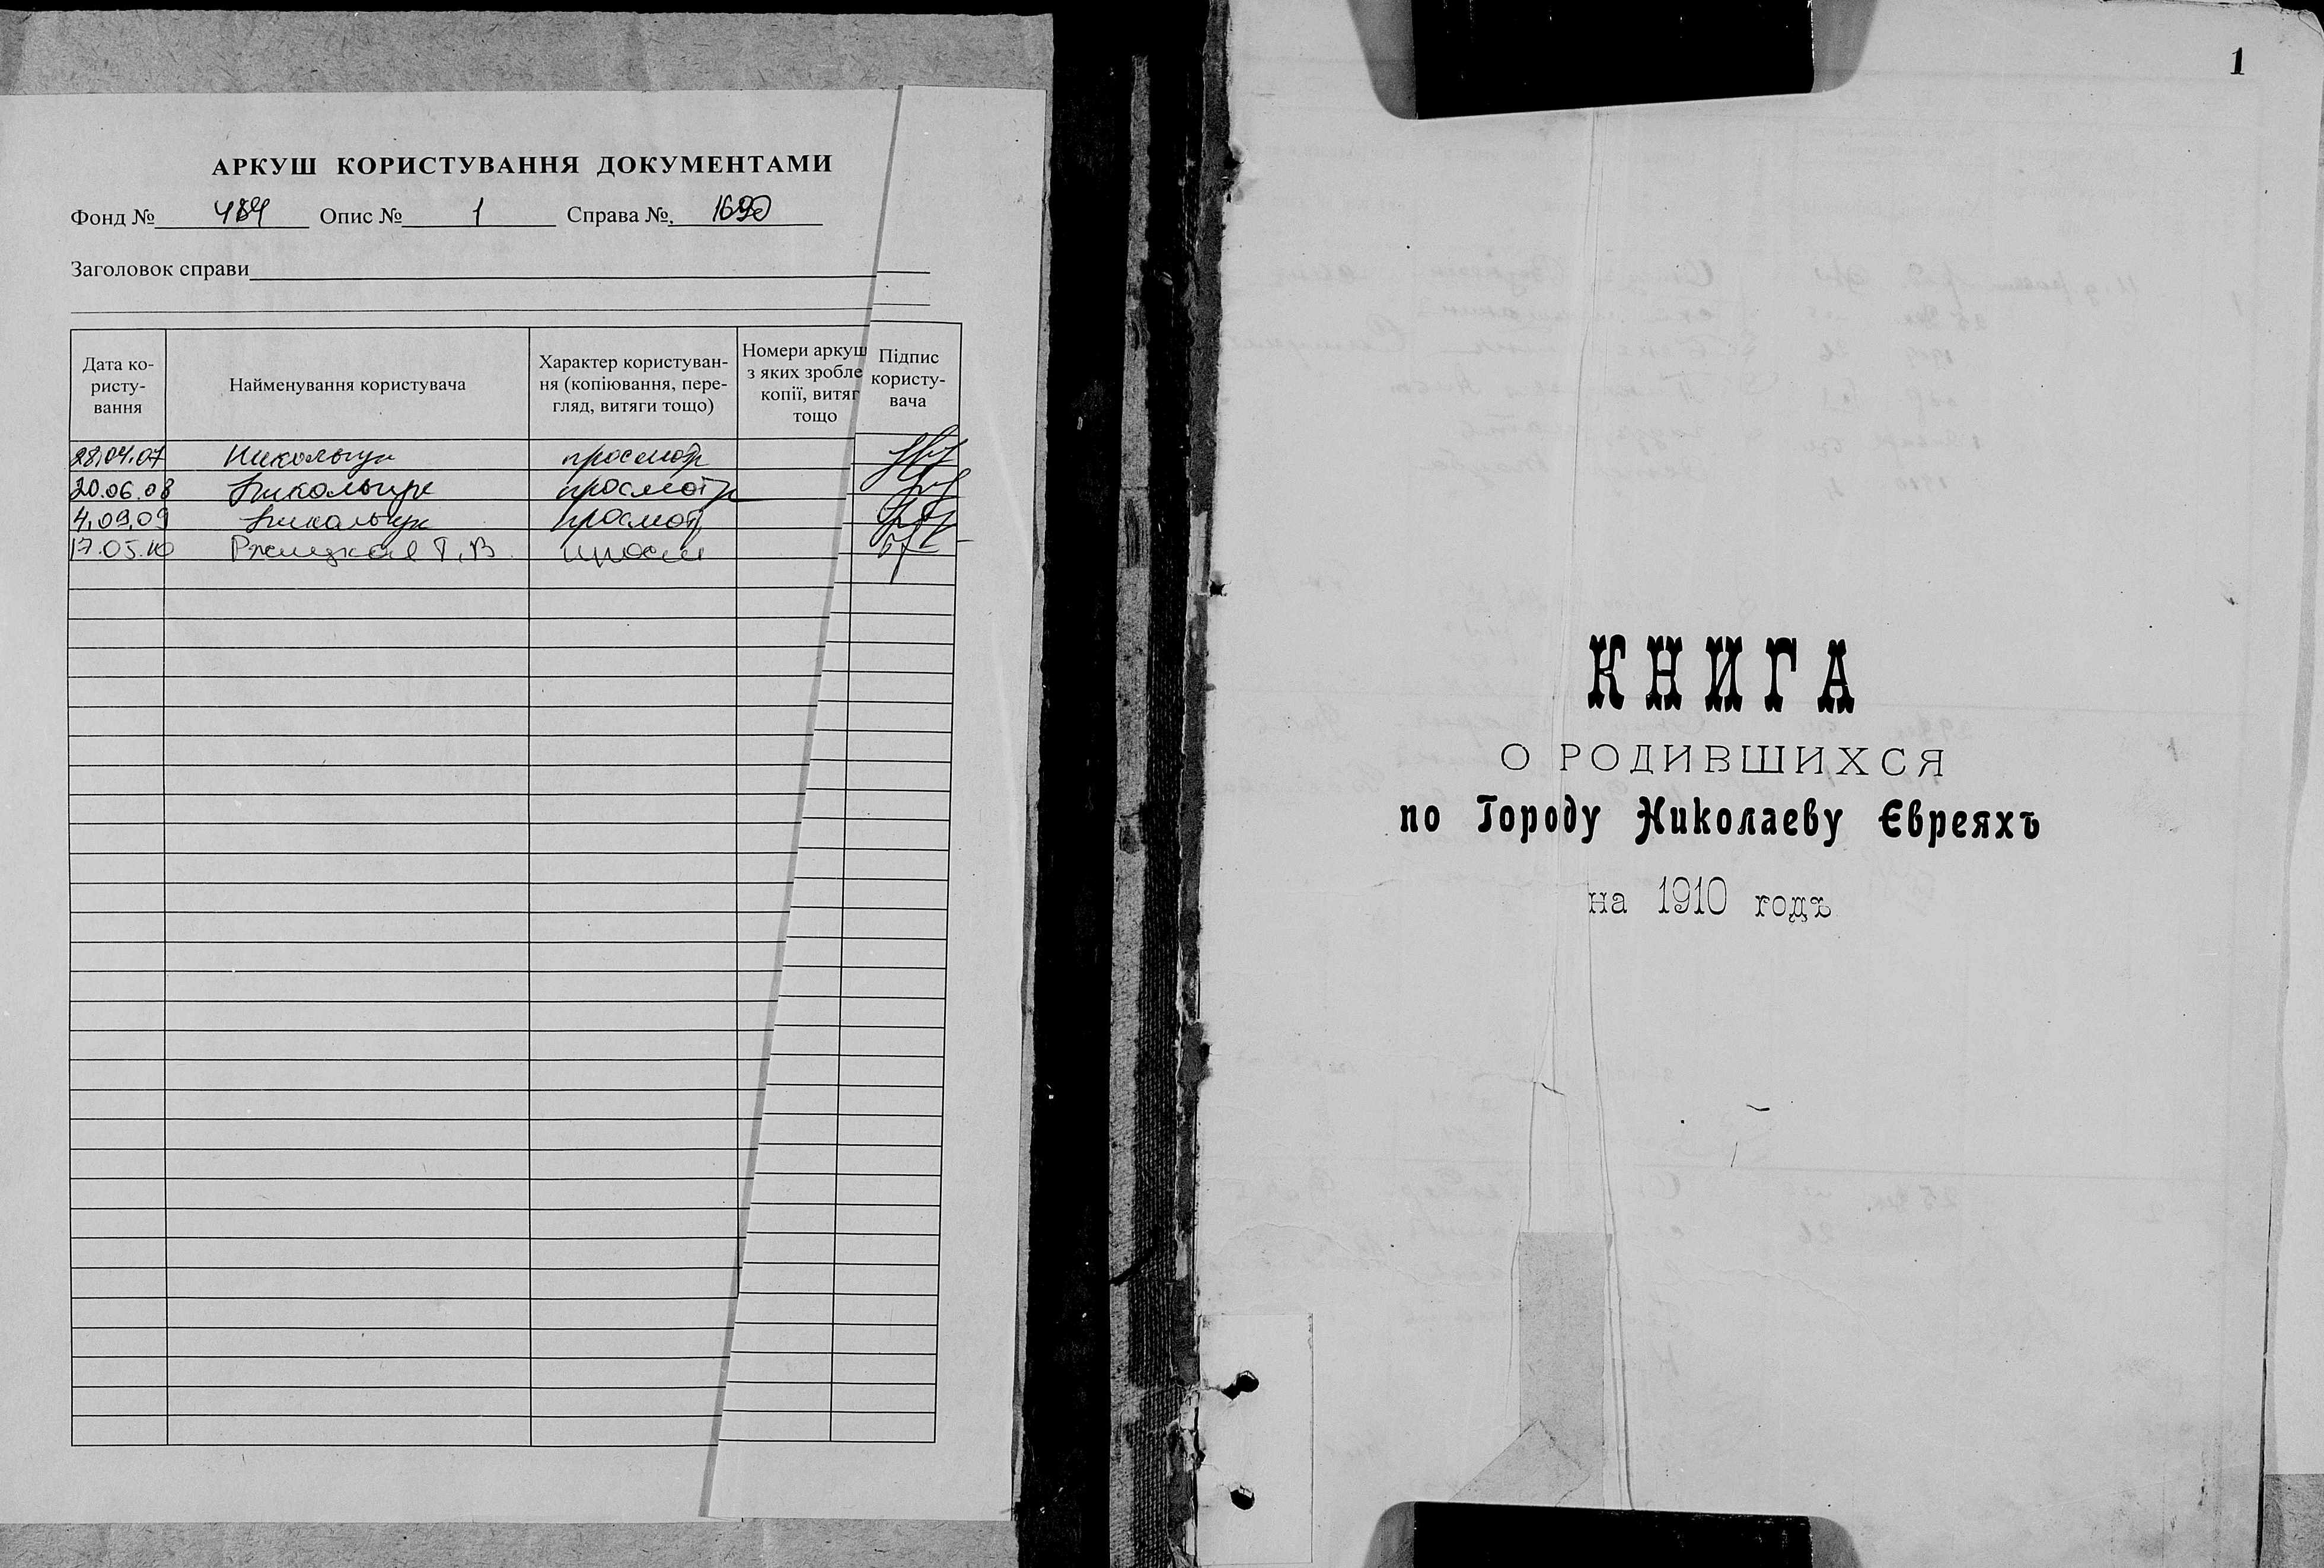 АРКУШ КОРИСТУВАННЯ ДОКУМЕНТАМИ
Фонд № 484 Опис № 1 Справа №. 1690
Заголовок справи
Дата ко-
ристу-
вання
Найменування користувача
Характер користуван-
ня (копіювання, пере-
гляд, витяги тощо)
Номери аркуш
з яких зробле
копії, витяг
тощо
Підпис
користу-
вача
28.04.07 просмотр
20.06.08 просмотр
4.09.09 просмотр
17.05.10 Ржицкая Т.В. просм
1
КНИГА
О РОДИВШИХСЯ
по Городу Николаеву Евреяхъ
на 1910 годъ